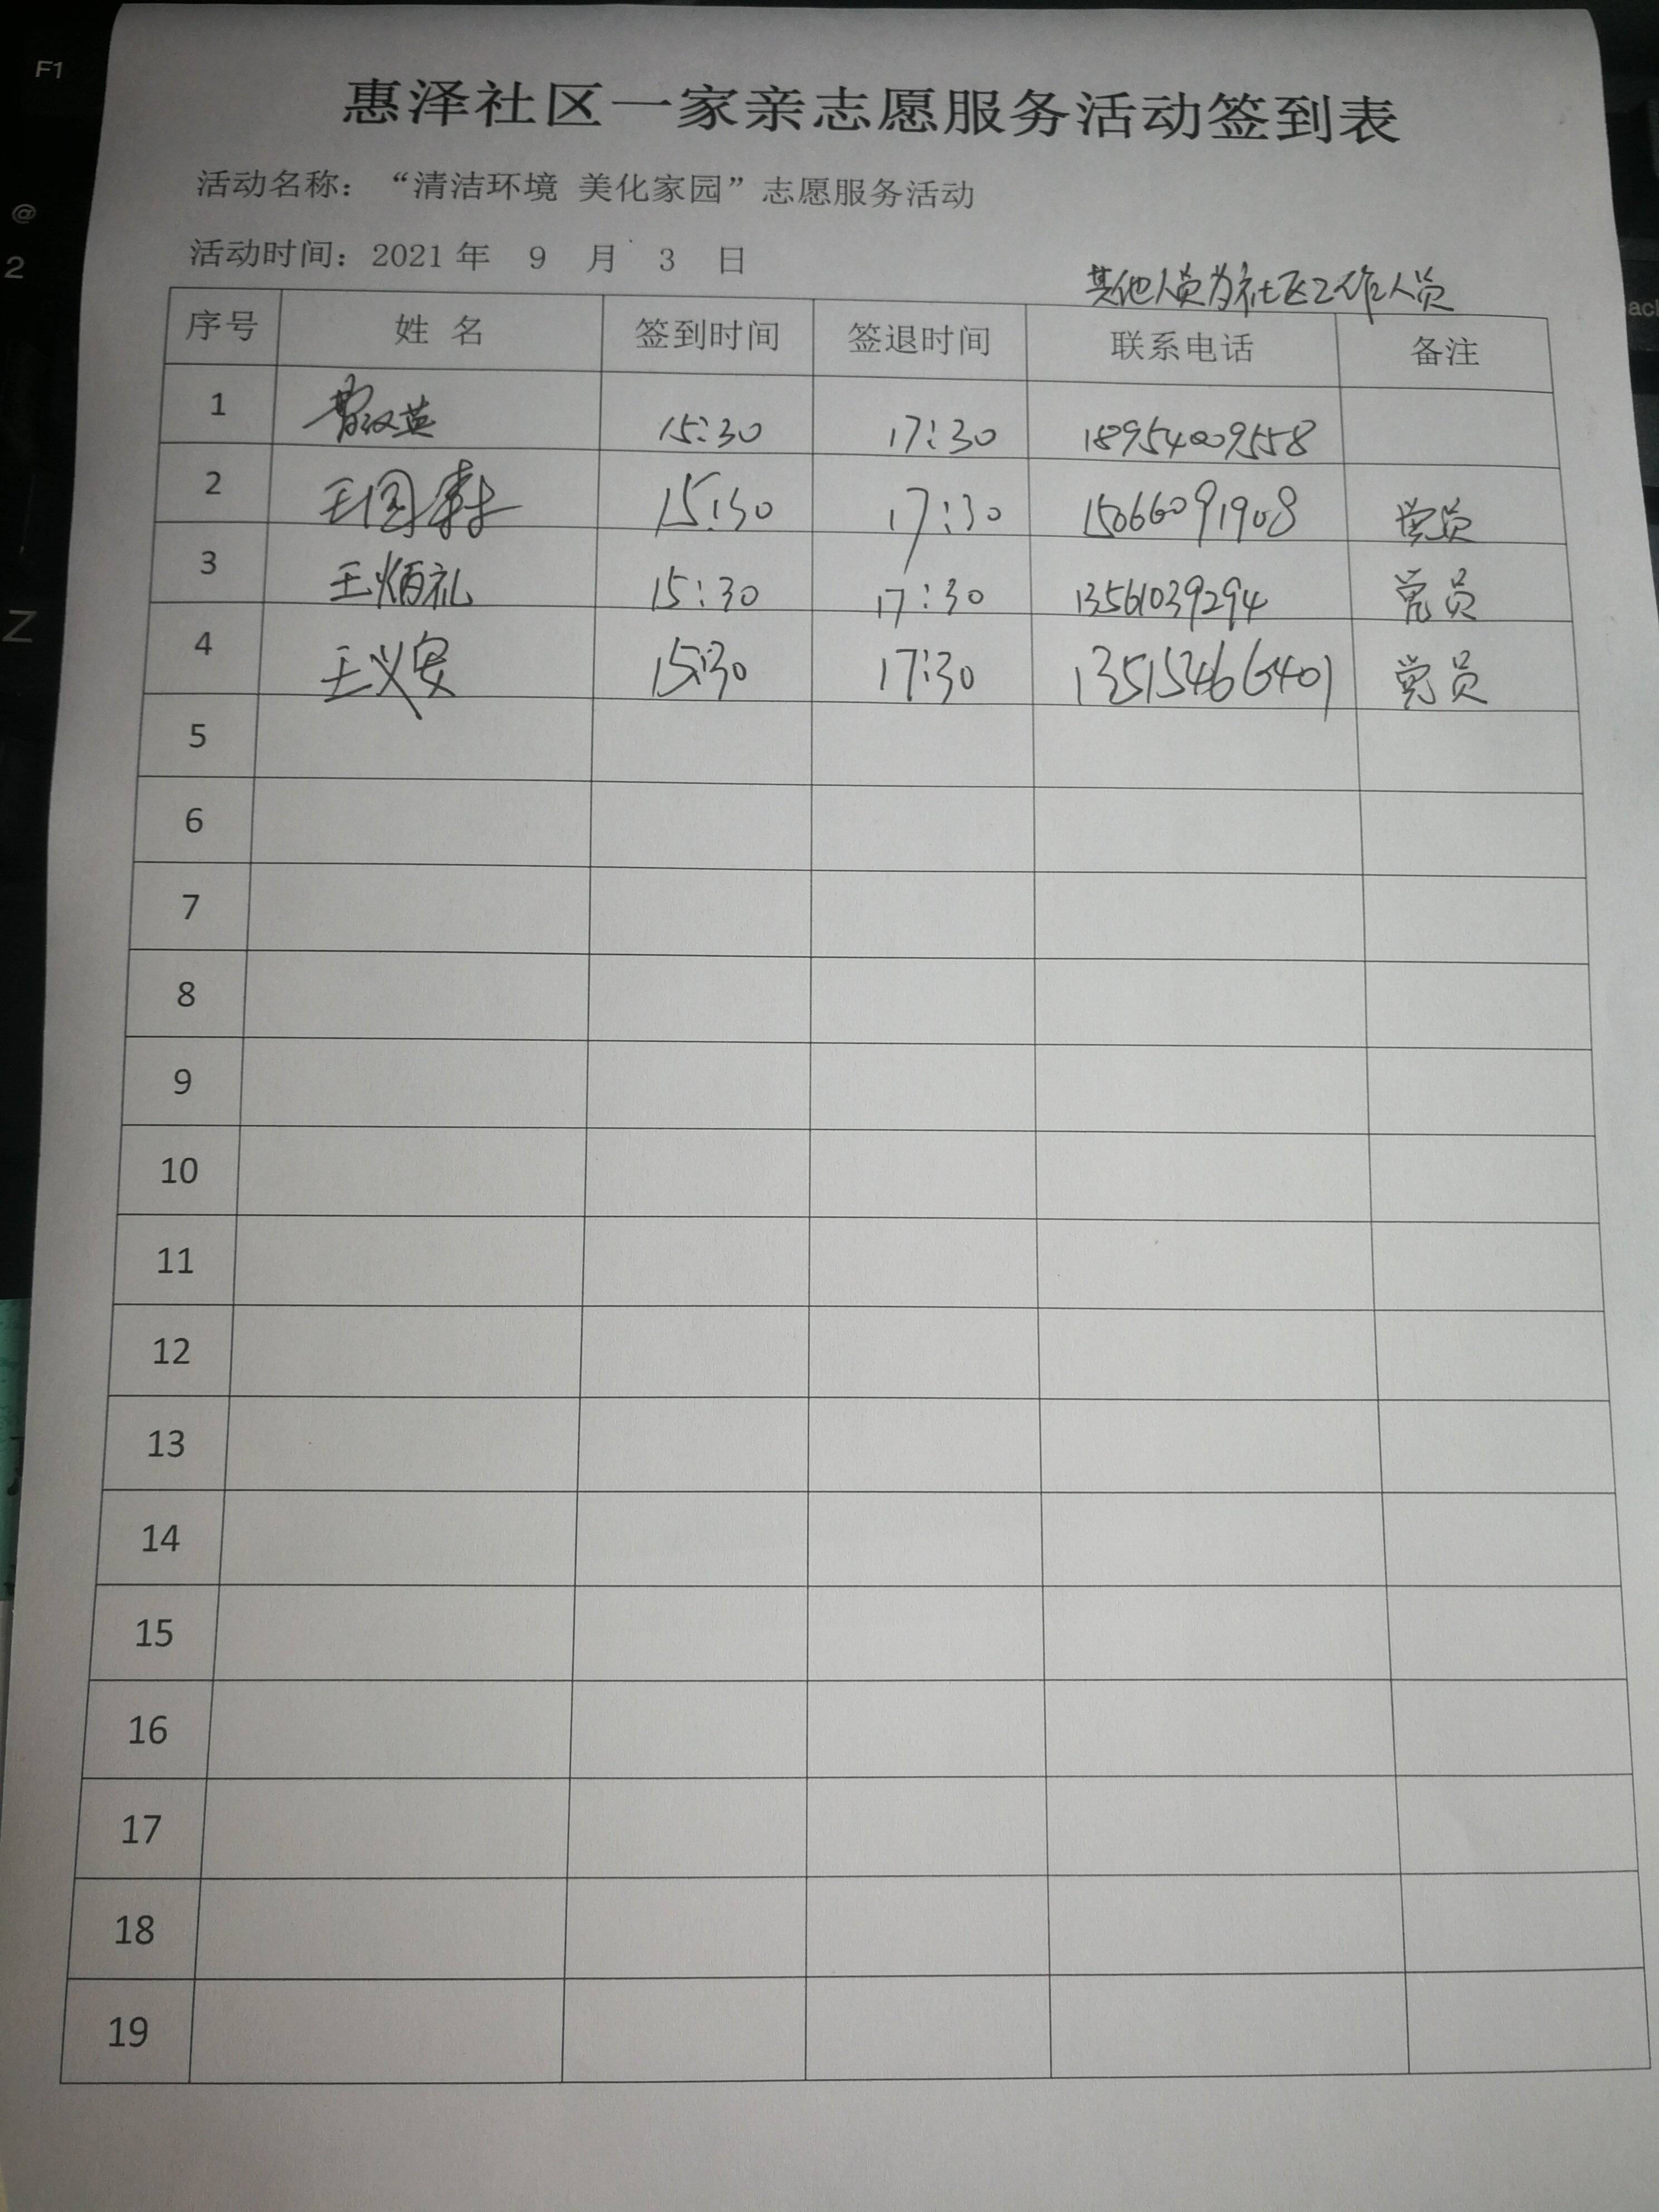 惠泽社区一家亲志愿服务活动签到表
活动名称：“清洁环境 美化家园”志愿服务活动
活动时间：2021 年 9 月 3 日
其他人员为社区工作人员
序号 姓 名 签到时间 签退时间 联系电话 备注
1 曹汉英 15:30 17:30 18954009558
2 王国 15:30 17:30 15066091908 党员
3 王炳礼 15:30 17:30 13561039294 党员
4 王义安 15:30 17:30 13515466401 党员
5
6
7
8
9
10
11
12
13
14
15
16
17
18
19
F1
@
2
Z